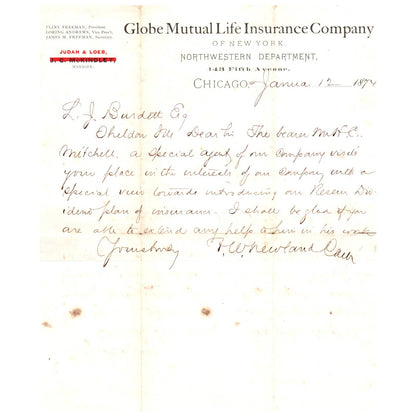 PLINY FREEMAN, President
LORING ANDREWS, Vice Pres't.
JAMES M. FREEMAN, Secretary.
JUDAH & LOEB,
J. C. McKINDLEY,
MANAGER.
Globe Mutual Life Insurance Company
OF NEW YORK.
NORTHWESTERN DEPARTMENT,
143 Fifth Avenue.
CHICAGO, Janua 12 1874
L. J. Burdett Esq
Sheldon Ills Dear Sir The bearer Mr H. E.
Mitchell, a Special agent of our Company visits
your place in the interests of our Company with a
Special view towards introducing our Reserve Div
idend plan of insurance. I shall be glad if you
are able to extend any help to him in his work
Yours truly
F. W. Newland